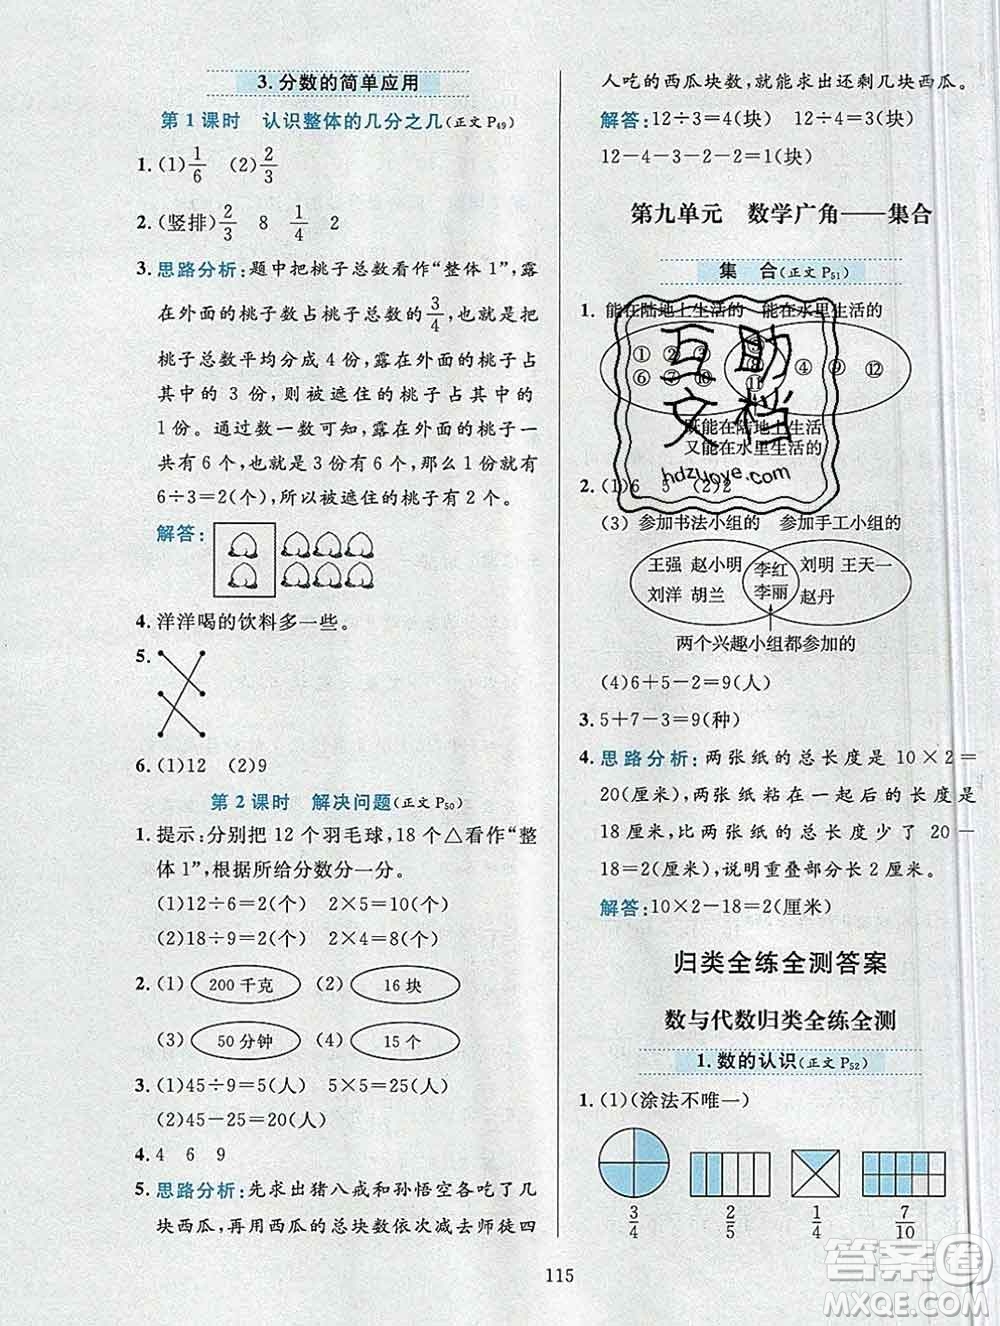 3.分数的简单应用
第1课时 认识整体的几分之几(正文P49)
1.(1)1/6 (2)2/3
2.(竖排)2/3 8 1/4 2
3.思路分析:题中把桃子总数看作“整体1”,露
在外面的桃子数占桃子总数的3/4,能够把
桃子总数平均分成4份,露在外面的桃子占
其中的3份,则被遮住的桃子占其中的
1份。通过数一数可知,露在外面的桃子一
共有6个,也就是3份有6个,那么1份就是
6÷3=2(个),所以被遮住的桃子有2个。
解答:
4.洋洋喝的饮料多一些。
5.
6.(1)12 (2)9
第2课时 解决问题(正文P50)
1.提示:分别把12个羽毛球,18个△看作“整
体1”,根据所给分数分一分。
(1)12÷6=2(个) 2×5=10(个)
(2)18÷9=2(个) 2×4=8(个)
2.(1)200千克 (2)16块
(3)50分钟 (4)15个
3.(1)45÷9=5(人) 5×5=25(人)
(2)45-25=20(人)
4.4 6 9
5.思路分析:先求出猪八戒和孙悟空各吃了几
块西瓜,再用西瓜的总块数依次减去师徒四
人吃的西瓜块数,就能求出还剩几块西瓜。
解答:12÷3=4(块) 12÷4=3(块)
12-4-3-2-2=1(块)
第九单元 数学广角——集合
集 合(正文P51)
1.能在陆地上生活的 能在水里生活的
①②③ ⑤ ④⑨⑫
⑥⑦⑩ ⑧ ⑪
既能在陆地上生活
又能在水里生活的
互助
文档
hdzuoye.com
2.(1)6 5 (2)2
(3)参加书法小组的 参加手工小组的
王强 赵小明 李红 刘明 王天一
刘洋 胡兰 李丽 赵丹
两个兴趣小组都参加的
(4)6+5-2=9(人)
3.5+7-3=9(种)
4.思路分析:两张纸的总长度是10×2=
20(厘米),两张纸粘在一起后的长度是
18厘米,比两张纸的总长度少了20-
18=2(厘米),说明重叠部分长2厘米。
解答:10×2-18=2(厘米)
归类全练全测答案
数与代数归类全练全测
1.数的认识(正文P52)
1.(1)(涂法不唯一)
3/4 2/5 1/4 7/10
115
答案圈
MXQE.COM